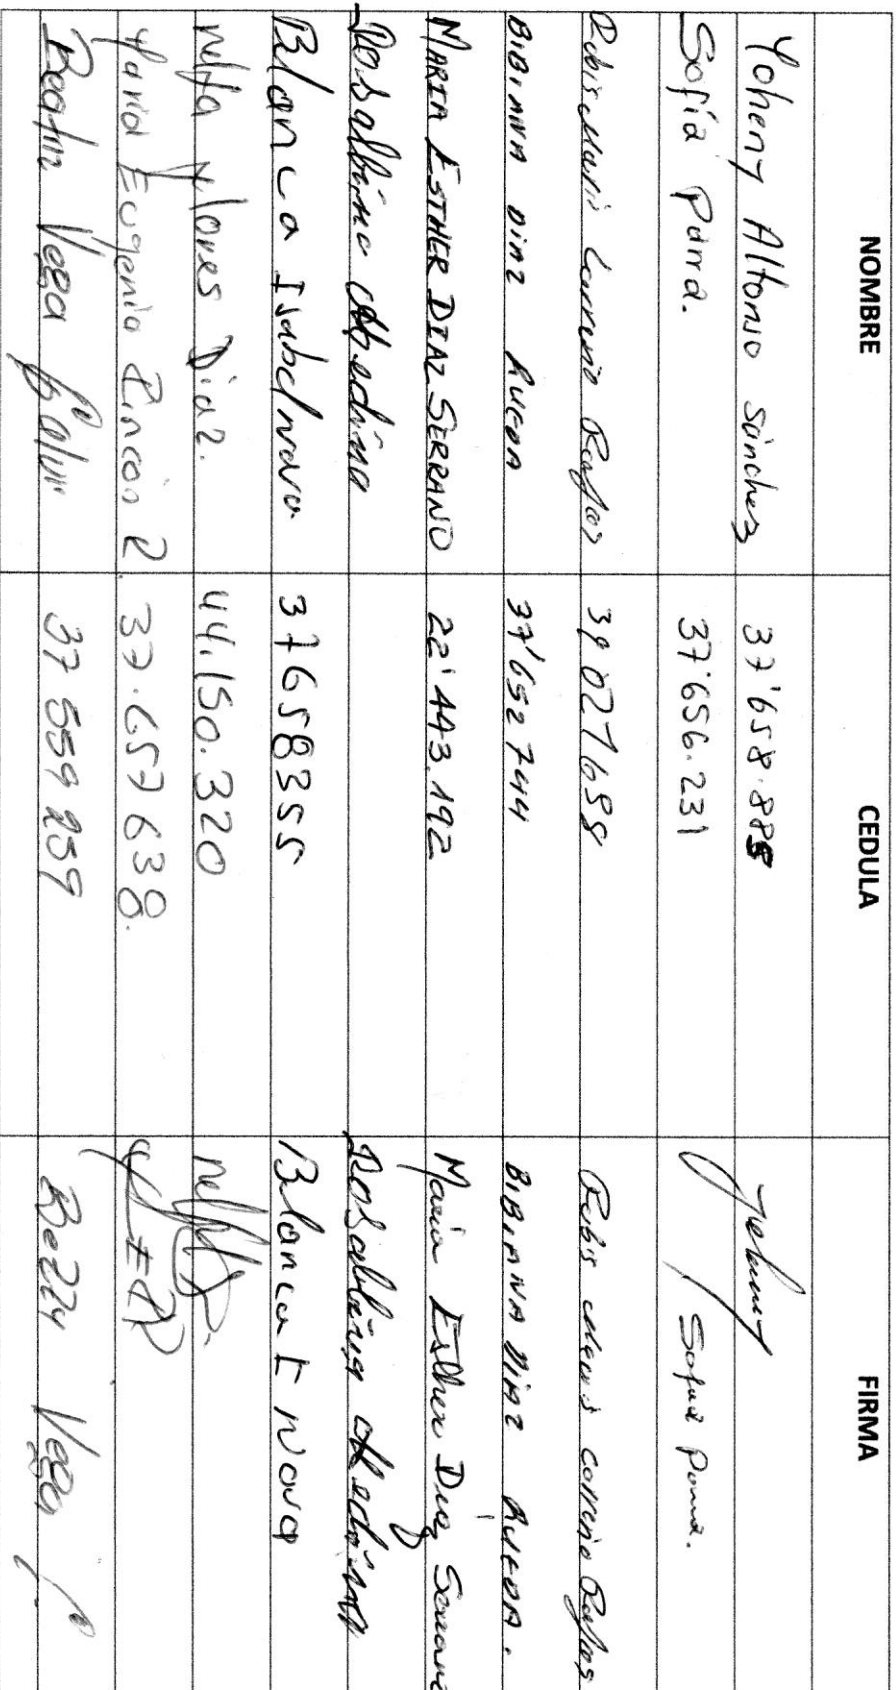 NOMBRE CEDULA FIRMA
Yoheny Alfonso Sánchez 37'658.885 Yoheny
Sofía Parra. 37'656.231 Sofía Parra.
Rubis Maris Carreño Rojas 39 027 658 Rubis Maris Carreño Rojas
BIBIANA DIAZ RUEDA 37'652744 BIBIANA DIAZ RUEDA.
MARIA ESTHER DIAZ SERRANO 22'443.192 Maria Esther Diaz Serrano
Rosalbina Medina Rosalbina Medina
Blanca Isabel Nova 37658355 Blanca I Nova
Nelfa Flores Diaz. 44.150.320
Maria Eugenia Rincón R 37.657638.
Beatriz Vega 37 559 259 Betty Vega